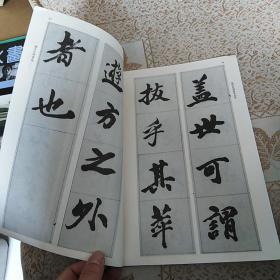 盖世可謂
拔乎其萃
遊方之外
者也